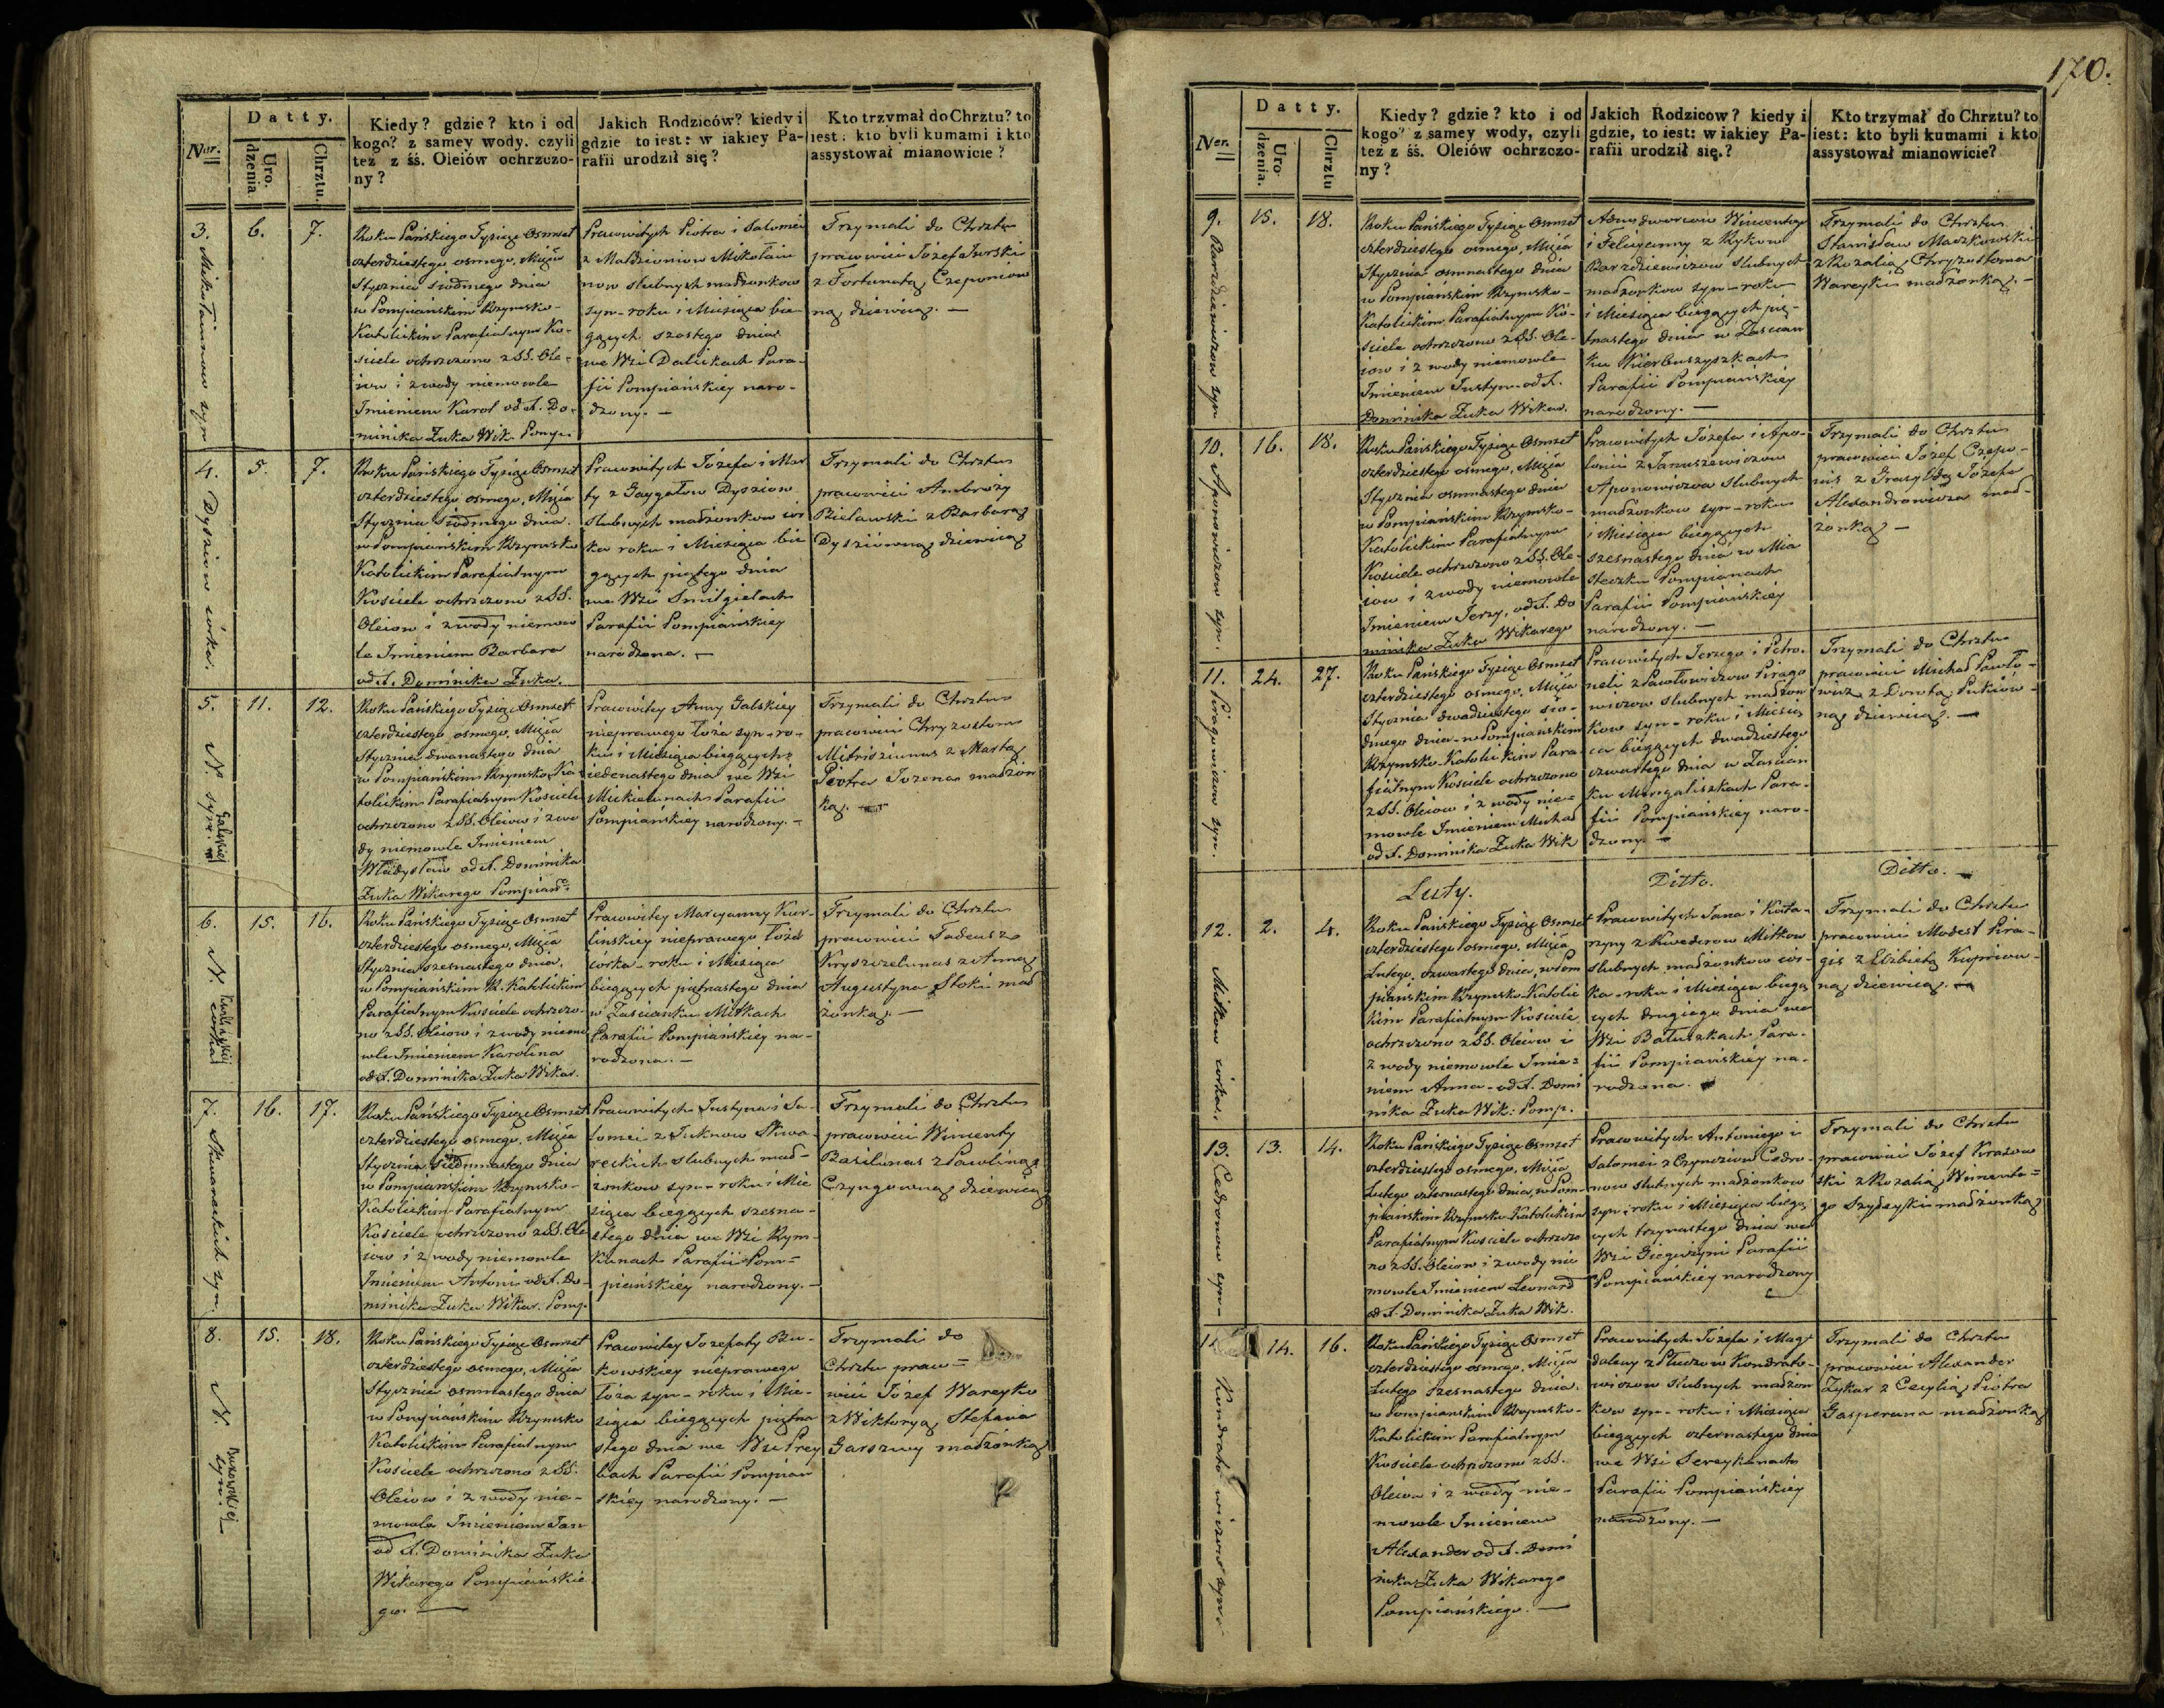 170.
Nor.
Datty.
Urodzenia.
Chrztu.
Kiedy? gdzie? kto i od
kogo? z samey wody, czyli
też z śś. Oleiów ochrzczo-
ny?
Jakich Rodziców? kiedy i
gdzie to iest: w iakiey Pa-
rafii urodził się?
Kto trzymał do Chrztu? to
iest: kto byli kumami i kto
assystował mianowicie?
3.
Mikołaiunow syn
6.
7.
Roku Pańskiego Tysiąc Osmset
czterdziestego osmego, Mca
Stycznia siodmego dnia
w Pompiańskim Rzymsko-
Katolickim Parafialnym Ko-
sciele ochrzczono z SS. Ole-
iow i z wody niemowle
Imieniem Karol od X. Do-
minika Żuka Wik. Pomp.
Pracowitych Piotra i Salomei
z Małdziuniow Mikołaiu
now slubnych małżonkow
syn - roku i Miesiąca bie
gących szostego dnia
we Wsi Daliukach Para-
fii Pompiańskiey naro-
dzony. —
Trzymali do Chrztu
pracowici Józef Jurski
z Fortunatą Czeponiow
ną dziewicą. —
4.
Dysiow córka.
5.
7.
Roku Pańskiego Tysiąc Osmset
czterdziestego osmego, Mca
Stycznia siodmego dnia.
w Pompiańskim Rzymsko
Katolickim Parafialnym
Kościele ochrzczono z SS.
Oleiow i z wody niemow
le Imieniem Barbara
od X. Dominika Żuka.
Pracowitych Józefa i Mar
ty z Gaygałow Dysziow
slubnych małżonkow cór
ka roku i Miesiąca bie
gących piątego dnia
we Wsi Smilgielach
Parafii Pompiańskiey
narodzona. —
Trzymali do Chrztu
pracowici Ambroży
Bielawski z Barbarą
Dysziówną dziewicą
5.
N. Galskiej syn
11.
12.
Roku Pańskiego Tysiąc Osmset
czterdziestego osmego, Mca
Stycznia dwanastego dnia
w Pompiańskim Rzymsko Ka
tolickim Parafialnym Kosciele
ochrzczono z SS. Oleiow i z wo
dy niemowle Imieniem
Władysław od X. Dominika
Żuka Wikarego Pompian:
Pracowitey Anny Galskiey
nieprawego łoża syn - ro-
ku i Miesiąca biegących
iedenastego dnia we Wsi
Mickiunach Parafii
Pompiańskiey narodzony. —
Trzymali do Chrztu
pracowici Chryzostom
z Martą
Piotra małżon
ką.
6.
N. córka
15.
16.
Roku Pańskiego Tysiąc Osmset
czterdziestego osmego, Mca
Stycznia szesnastego dnia,
w Pompiańskim R. Katolickim
Parafialnym Kosciele ochrzczo-
no z SS. Oleiow i z wody niemo
wle Imieniem Karolina
od X. Dominika Żuka Wikar.
Pracowitey Maryanny Kar-
linskiey nieprawego łoża
córka - roku i Miesiąca
biegących piętnastego dnia
w Zaścianku Mitkach
Parafii Pompiańskiey na-
rodzona. —
Trzymali do Chrztu
pracowici Tadeusz
z Anną
Augustyna Stoki mał
żonką. —
7.
Skwareckich syn.
16.
17.
Roku Pańskiego Tysiąc Osmset
czterdziestego osmego, Mca
Stycznia siedmnastego dnia
w Pompiańskim Rzymsko-
Katolickim Parafialnym
Kościele ochrzczono z SS. Ole
iow i z wody niemowle
Imieniem Antoni od X. Do-
minika Żuka Wikar. Pomp.
Pracowitych Justyna i Sa-
lomei z Juknow Skwa-
reckich slubnych mał-
żonkow syn - roku i Mie
siąca biegących szesna-
stego dnia we Wsi Rym-
kunach Parafii Pom-
piańskiey narodzony. —
Trzymali do Chrztu
pracowici Wincenty
Basilunas z Pawliną
Czyngowną dziewicą
8.
N. Bukowskiej syn. —
15.
18.
Roku Pańskiego Tysiąc Osmset
czterdziestego osmego, Mca
Stycznia osmnastego dnia
w Pompiańskim Rzymsko
Katolickim Parafialnym
Kościele ochrzczono z SS.
Oleiow i z wody nie-
mowle Imieniem Jan
od X. Dominika Żuka
Wikarego Pompiańskie
go. —
Pracowitey Jozefaty Bu-
kowskiey nieprawego
łoża syn - roku i Mie-
siąca biegących piętna
stego dnia we Wsi Prey
bach Parafii Pompian
skiey narodzony. —
Trzymali do
Chrztu praco=
wici Józef Wareyko
z Wiktoryą Stefana
Garszwy małżonką
Nor.
Datty.
Urodzenia.
Chrztu
Kiedy? gdzie? kto i od
kogo? z samey wody, czyli
też z śś. Oleiów ochrzczo-
ny?
Jakich Rodziców? kiedy i
gdzie, to iest: w iakiey Pa-
rafii urodził się.?
Kto trzymał do Chrztu? to
iest: kto byli kumami i kto
assystował mianowicie?
9.
Barzdziewiczow syn.
15.
18.
Roku Pańskiego Tysiąc Osmset
czterdziestego osmego, Mca
Stycznia osmnastego dnia
w Pompiańskim Rzymsko-
Katolickim Parafialnym Ko-
sciele ochrzczono z SS. Ole-
iow i z wody niemowle
Imieniem Justyn od X.
Dominika Żuka Wikar.
Wincentego
i Felicyanny z Rykow
Barzdziewiczow slubnych
małżonkow syn - roku
i Miesiąca biegących pię-
tnastego dnia w Zascian
ku Kierbuszyszkach
Parafii Pompiańskiey
narodzony. —
Trzymali do Chrztu
Stanisław Maczkowski
z Rozalią Chryzostoma
Wareyki małżonką. —
10.
Aponowiczow syn.
16.
18.
Roku Pańskiego Tysiąc Osmset
czterdziestego osmego, Mca
Stycznia osmnastego dnia
w Pompiańskim Rzymsko-
Katolickim Parafialnym
Kosciele ochrzczono z SS. Ole-
iow i z wody niemowle
Imieniem Jerzy, od X. Do
minika Żuka Wikarego
Pracowitych Józefa i Apo-
lonii z Januszewiczow
Aponowiczow slubnych
małżonkow syn - roku
i Miesiąca biegących
szesnastego dnia w Mia
steczku Pompianach
Parafii Pompiańskiey
narodzony. —
Trzymali do Chrztu
pracowici Józef Czepo-
nis z Grasyldą Józefa
Alexandrowicza mał-
żonką —
11.
Piragowiczow syn.
24.
27.
Roku Pańskiego Tysiąc Osmset
czterdziestego osmego, Mca
Stycznia dwadziestego sio-
dmego dnia - w Pompiańskim
Rzymsko-Katolickim Para-
fialnym Kosciele ochrzczono
z SS. Oleiow i z wody nie=
mowle Imieniem Michał
od X. Dominika Żuka Wik
Pracowitych Jerzego i Petro-
neli z Pawłowiczow Pirago
wiczow slubnych małżon
kow syn - roku i Miesią
ca biegących dwadziestego
czwartego dnia w Zascian
ku Margaliszkach Para-
fii Pompiańskiey naro-
dzony. —
Trzymali do Chrztu
pracowici Michał Pawło-
wicz z Dorotą Pukiów-
ną dziewicą. —
Luty.
Ditto.
Ditto. —
12.
Mitkow córka.
2.
4.
Roku Pańskiego Tysiąc Osmset
czterdziestego osmego, Mca
Lutego, czwartego dnia, w Pom
piańskim Rzymsko-Katolic
kim Parafialnym Kosciele
ochrzczono z SS. Oleiow i
z wody niemowle Imie=
niem Anna - od X. Domi
nika Żuka Wik: Pomp.
Pracowitych Jana i Kata-
rzyny z Kwederow Mitkow
slubnych małżonkow cór-
ka - roku i Miesiąca biegą
cych drugiego dnia we
Wsi Batuszkach Para-
fii Pompiańskiey na-
rodzona.
Trzymali do Chrztu
pracowici Modest Pira-
gis z Elżbietą Kupriow-
ną dziewicą. —
13.
Cedronow syn —
13.
14.
Roku Pańskiego Tysiąc Osmset
czterdziestego osmego, Mca
Lutego czternastego dnia, w Pom-
piańskim Rzymsko-Katolickim
Parafialnym Kosciele ochrzczo
no z SS. Oleiow i z wody nie
mowle Imieniem Leonard
od X. Dominika Żuka Wik.
Pracowitych Antoniego i
Salomei z Czynciow Cedro-
now slubnych małżonkow
syn - roku i Miesiąca biegą
cych trzynastego dnia we
Wsi Giegużyni Parafii
Pompiańskiey narodzony
Trzymali do Chrztu
pracowici Józef Krasow
ski z Rozalią Wincente=
go Szydeyki małżonką
Kondratowiczow syn
14.
16.
Roku Pańskiego Tysiąc Osmset
czterdziestego osmego, Mca
Lutego szesnastego dnia.
w Pompiańskim Rzymsko-
Katolickim Parafialnym
Kosciele ochrzczono z SS.
Oleiow i z wody nie-
mowle Imieniem
Alexander od X. Domi
nika Żuka Wikarego
Pompiańskiego. —
Pracowitych Józefa i Mag-
daleny z Stuczow Kondrato-
wiczow slubnych małżon
kow syn - roku i Miesiąca
biegących czternastego dnia
we Wsi Sereykanach
Parafii Pompiańskiey
narodzony. —
Trzymali do Chrztu
pracowici Alexander
Żykar z Cecylią Piotra
Gasperuna małżonką